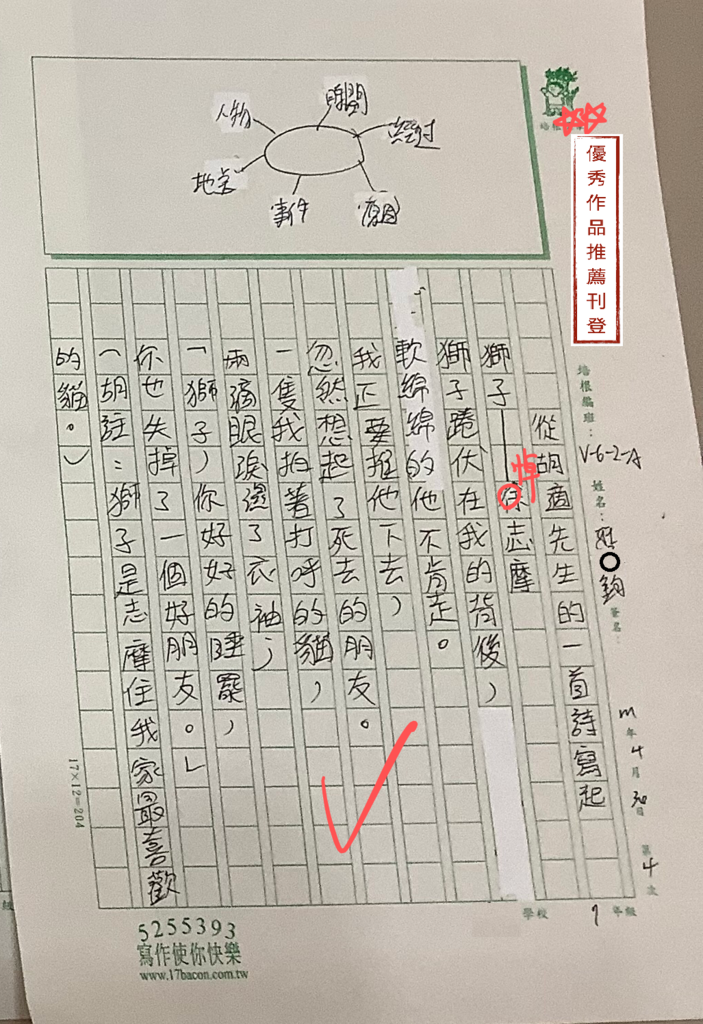 人物
時間
經过
地点
事件
培根
優秀作品推薦刊登
培根編班：V-6-2-A
姓名：
鈞
筆名：
年4月30日
第4次
7年級
學校
從胡適先生的一首詩寫起
獅子——悼徐志摩
獅子踡伏在我的背後，
軟綿綿的他不肯走。
我正要推他下去，
忽然想起了死去的朋友。
一隻我拍著打呼的貓，
兩滴眼淚濕了衣袖，
「獅子，你好好的睡罷，
你也失掉了一個好朋友。」
（胡註：獅子是志摩住我家最喜歡
的貓。）
17×12=204
5255393
寫作使你快樂
www.17bacon.com.tw
級